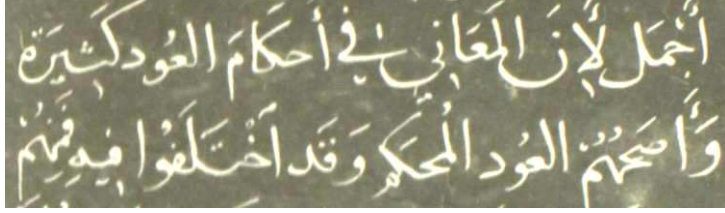 أَجْمَل لِأَنَ المَعَانِي فِي أَحكَامَ العُود كَثِيرَة
وَأَصَحهُمْ العُود المُحكَم وَقَد اَخْتَلَفُوا فِيهِ فَمِنْهُمْ